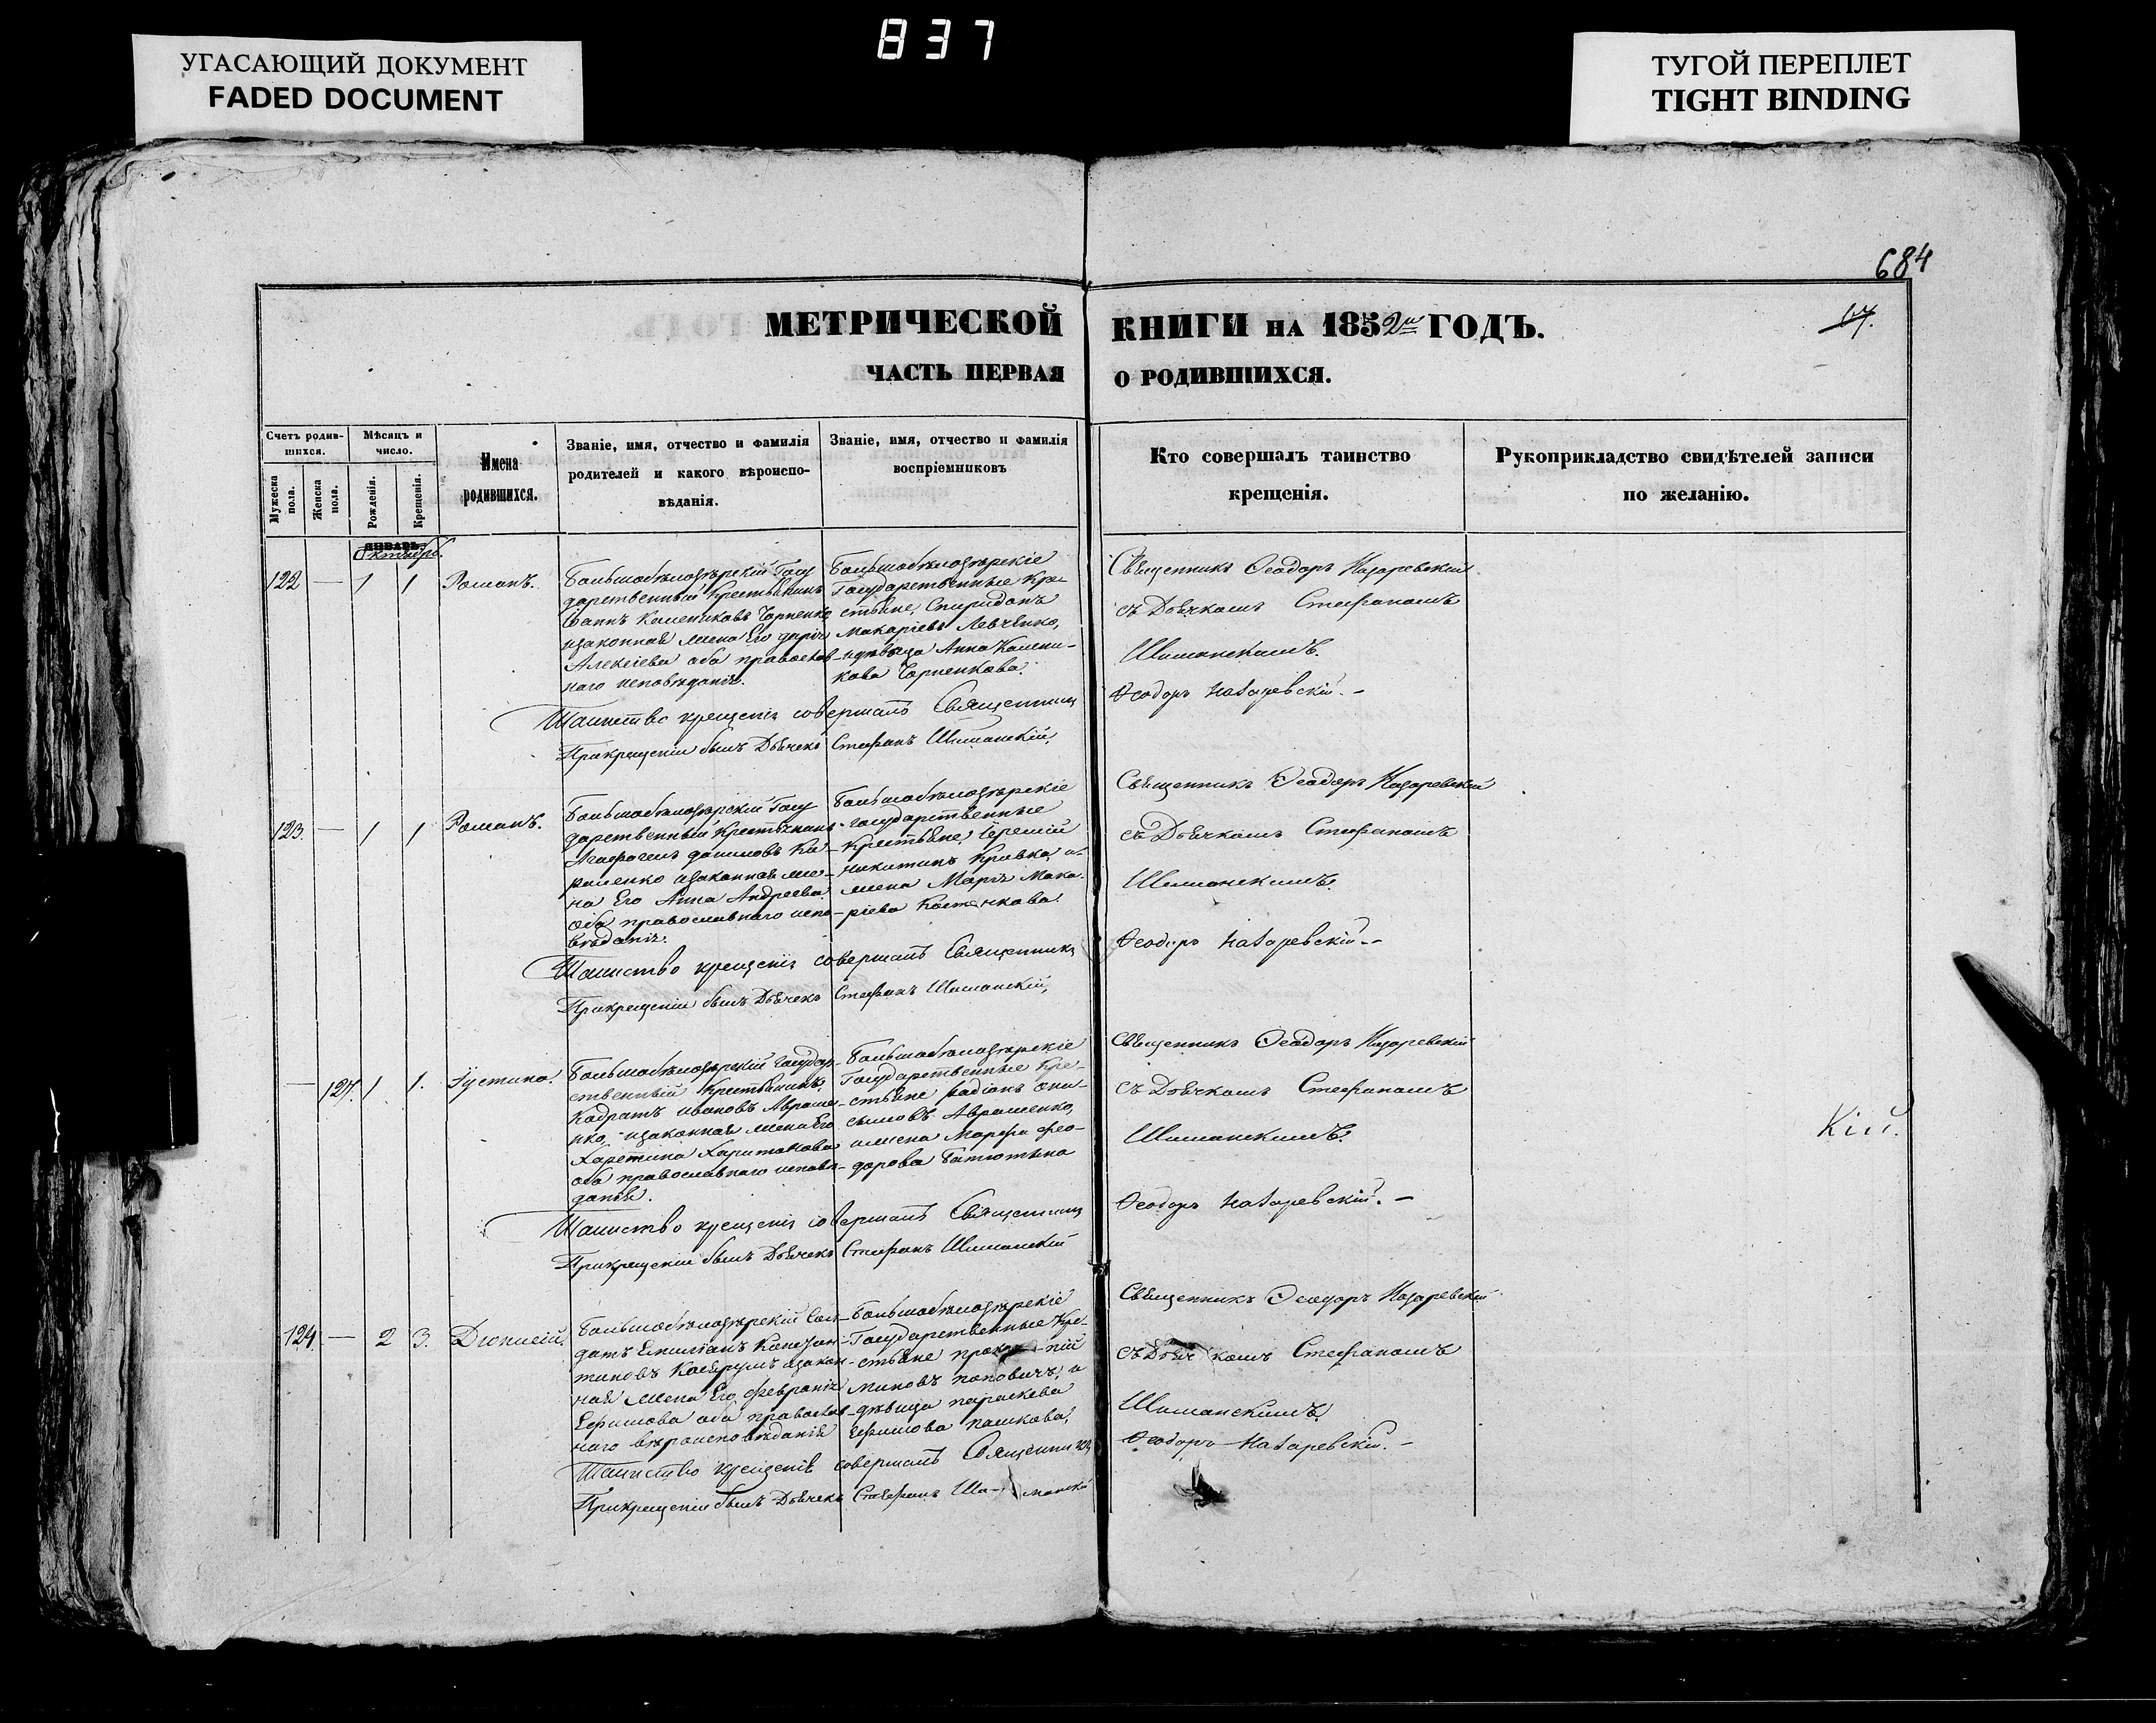 837
УГАСАЮЩИЙ ДОКУМЕНТ
FADED DOCUMENT
ТУГОЙ ПЕРЕПЛЕТ
TIGHT BINDING
684
МЕТРИЧЕСКОЙ КНИГИ НА 1852й ГОДЪ.
17.
ЧАСТЬ ПЕРВАЯ О РОДИВШИХСЯ.
Счетъ родив-
шихся.
Мужеска пола.
Женска пола.
Мѣсяцъ и
число.
Рожденія.
Крещенія.
Имена
родившихся.
Званіе, имя, отчество и фамилія
родителей и какого вѣроиспо-
вѣданія.
Званіе, имя, отчество и фамилія
воспріемниковъ
Кто совершалъ таинство
крещенія.
Рукоприкладство свидѣтелей записи
по желанію.
ЯНВАРЬ
Октябрь.
122 — 1 1 Романъ.
Большобѣлозѣрскій Госу
дарственный крестьянинъ
Іоаннъ Калениковъ Чорненко
изаконная жена Его Дарія
Алексіева оба православ-
наго исповѣданія.
Большобѣлозѣрскіе
Государственные Кре-
стьяне, Спиридонъ
Макаріевъ Левченко,
идѣвица Анна Калени-
кова Чорненкова.
Священникъ Ѳеодоръ Назаревскій
съ Дьячкомъ Стефаномъ
Шиманскимъ.
Ѳеодоръ Назаревскій. –
Таинство крещенія совершалъ Священникъ
Прикрещеніи былъ Дьячекъ Стефанъ Шиманскій,
123. — 1 1 Романъ.
Большобѣлозѣрскій Госу
дарственный Крестьянинъ
Агафогенъ даниловъ
изаконная же-
на Его Анна Андреева
оба православнаго испо-
вѣданія.
Большобѣлозѣрскіе
государственные
крестьяне, Іеремій
никитинъ Кривко, и
жена Марія Мака-
ріева
Священникъ Ѳеодоръ Назаревскій
съ Дьячкомъ Стефаномъ
Шиманскимъ.
Ѳеодоръ Назаревскій. –
Таинство крещенія совершалъ Священникъ
Прикрещеніи былъ Дьячекъ Стефанъ Шиманскій,
— 127. 1 1. Іустина.
Большобѣлозѣрскій Государ-
ственный Крестьянинъ
Кодратъ ивановъ Авраме-
нко, изаконная жена Его
Харетина Харитонова
оба православнаго исповѣ-
данія.
Большобѣлозѣрскіе
Государственные Кре-
стьяне радіонъ они-
симовъ Авраменко,
ижена Марфа фео-
дорова
Священникъ Ѳеодоръ Назаревскій
съ Дьячкомъ Стефаномъ
Шиманскимъ.
Ѳеодоръ Назаревскій. –
Кій.
Таинство крещенія совершалъ Священникъ
Прикрещеніи былъ Дьячекъ Стефанъ Шиманскій
124 — 2 3. Діонисій.
Большобѣлозѣрскій Сол-
датъ Емиліанъ Констан-
тиновъ изакон-
ная жена Его февронія
Ефимова оба православ-
наго вѣроисповѣданія
Большобѣлозѣрскіе
Государственные Кре-
стьяне
миновъ поповичъ, и
дѣвица параскева
Ефимова пашкова,
Священникъ Ѳеодоръ Назаревскій
съ Дьячкомъ Стефаномъ
Шиманскимъ
Ѳеодоръ Назаревскій. –
Таинство крещенія совершалъ Священникъ
Прикрещеніи былъ Дьячекъ Стефанъ Ши- манскій